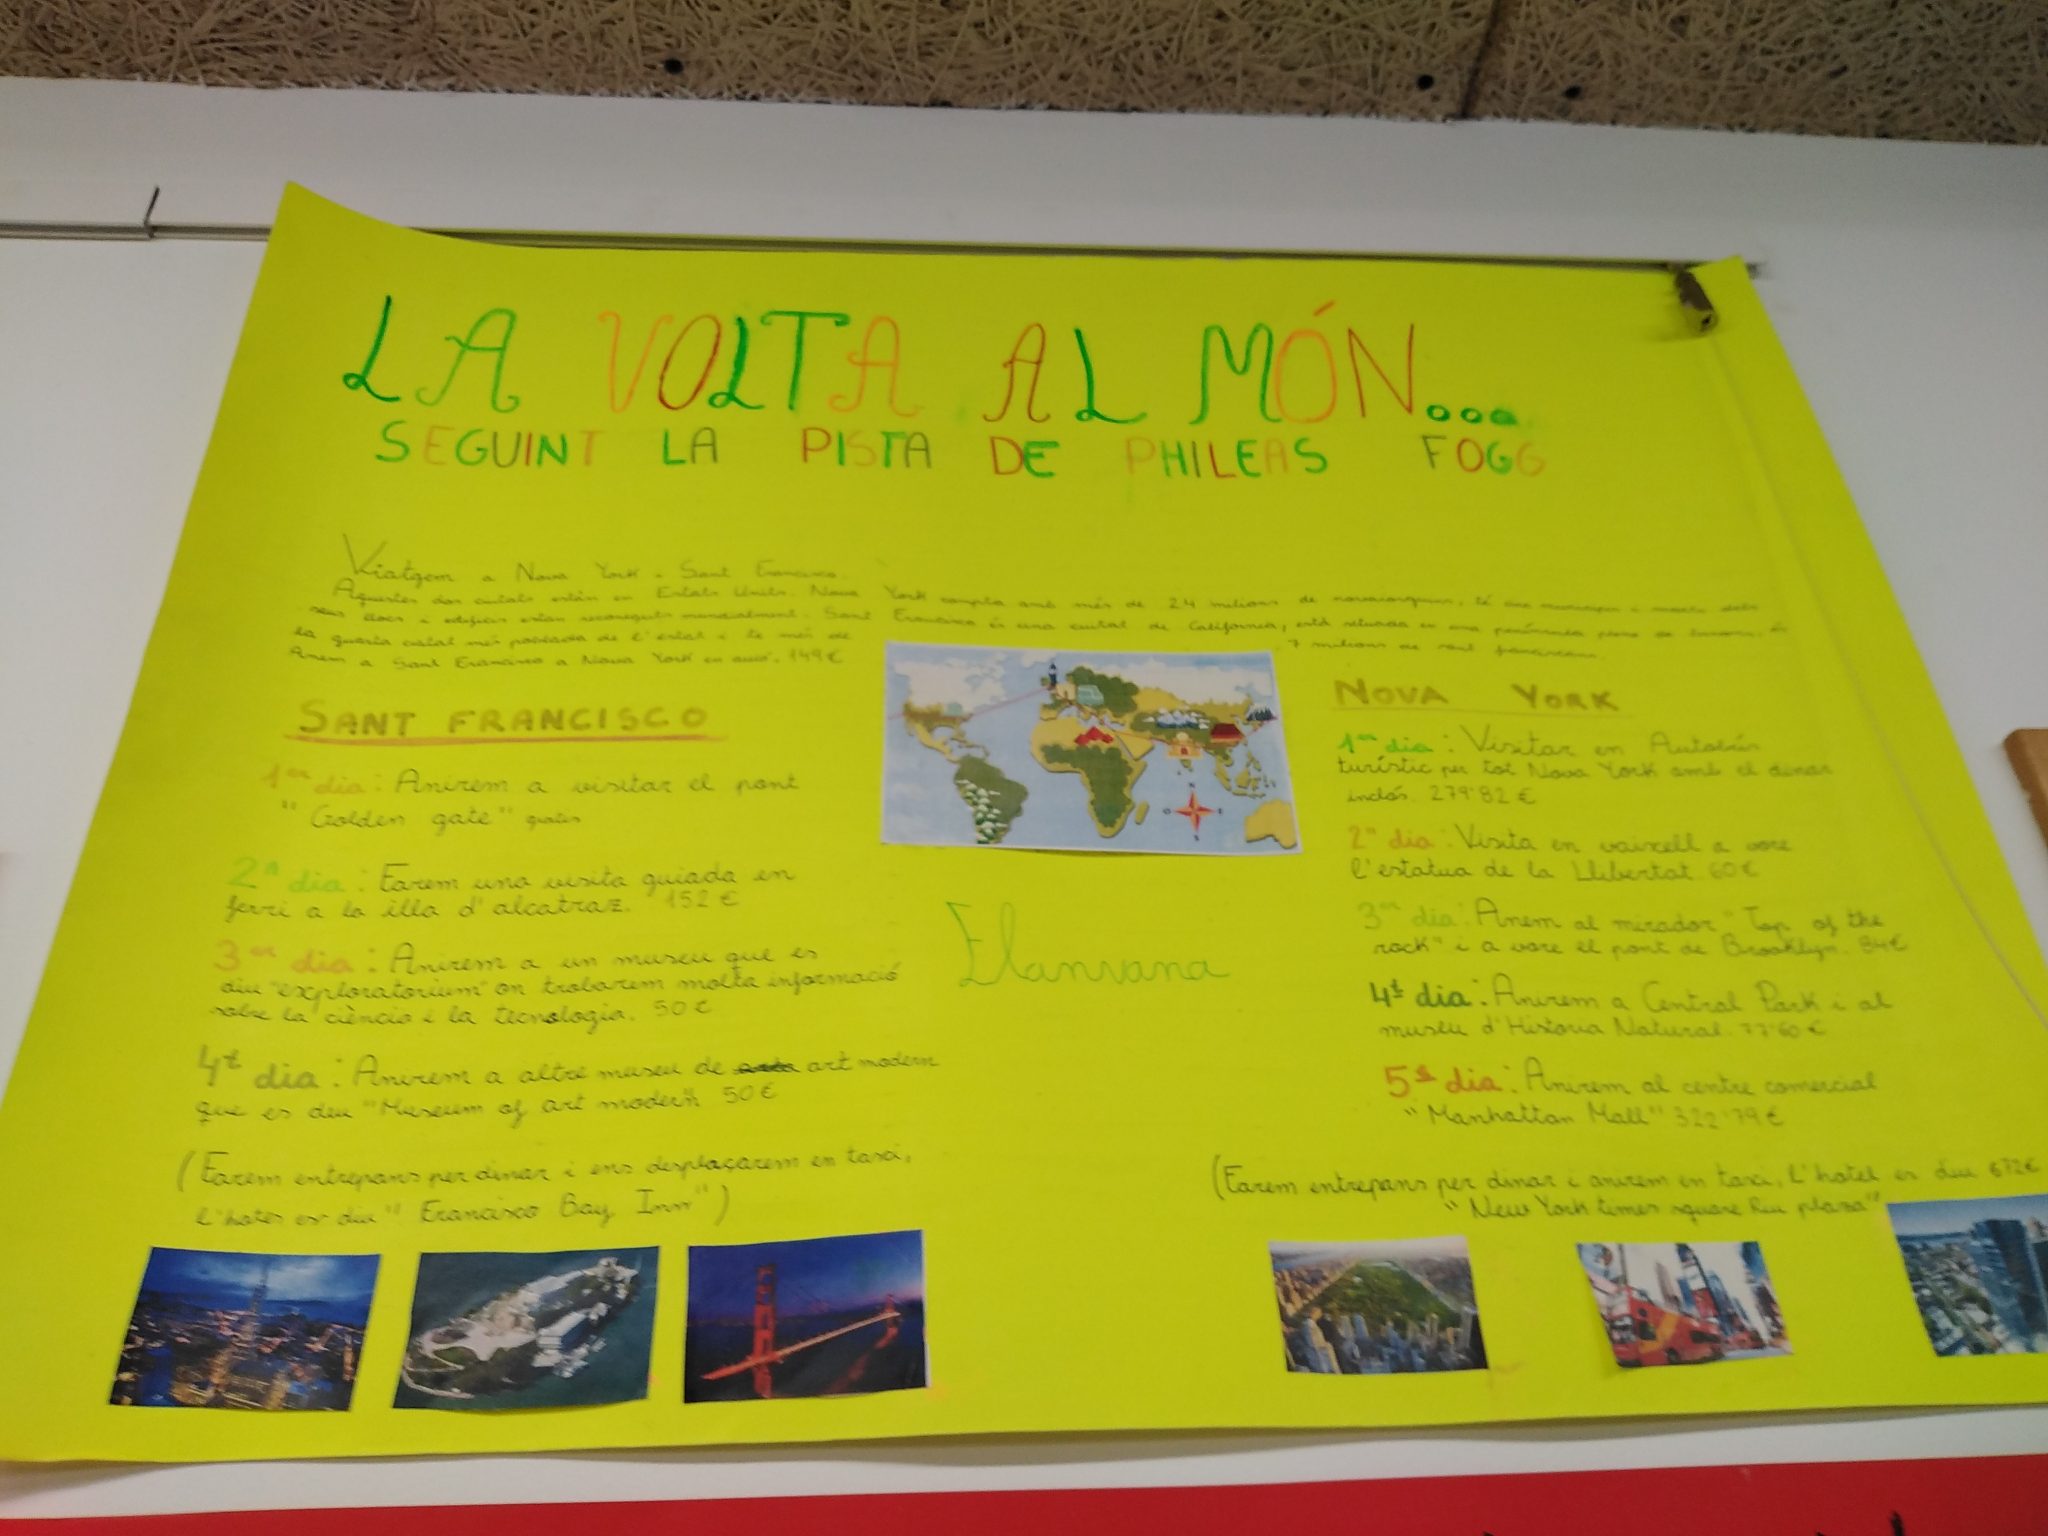 LA VOLTA AL MÓN...
SEGUINT LA PISTA DE PHILEAS FOGG
Viatgem a Nova York i Sant Francisco.
Aquestes dos ciutats estàn en Estats Units. Nova York compta amb més de 24 milions de novaiorquins, té
seus llocs i edificis estan reconeguts mundialment. Sant Francisco és una ciutat de California, està situada en una península plena de
la quarta ciutat més poblada de l'estat i te més de 7 milions de
Anem a Sant Francisco a Nova York en avió. 149€
SANT FRANCISCO
1er dia: Anirem a visitar el pont
"Golden gate" gratis
2n dia: Farem una visita guiada en
ferri a la illa d'alcatraz. 152€
3er dia: Anirem a un museu que es
diu "exploratorium" on trobarem molta informació
sobre la ciència i la tecnologia. 50€
4t dia: Anirem a altre museu de art modern
que es diu "Museum of art modern" 50€
(Farem entrepans per dinar i ens desplaçarem en taxi,
l'hotel es diu "Francisco Bay Inn")
Elanvana
NOVA YORK
1er dia: Visitar en Autobús
turístic per tot Nova York amb el dinar
inclós. 279'82€
2n dia: Visita en vaixell a vore
l'estatua de la Llibertat. 60€
3er dia: Anem al mirador "Top of the
rock" i a vore el pont de Brooklyn. 84€
4t dia: Anirem a Central Park i al
museu d'Historia Natural. 77'60€
5é dia: Anirem al centre comercial
"Manhattan Mall" 322'79€
(Farem entrepans per dinar i anirem en taxi, l'hotel es diu 672€
"New York times square Riu plaza"